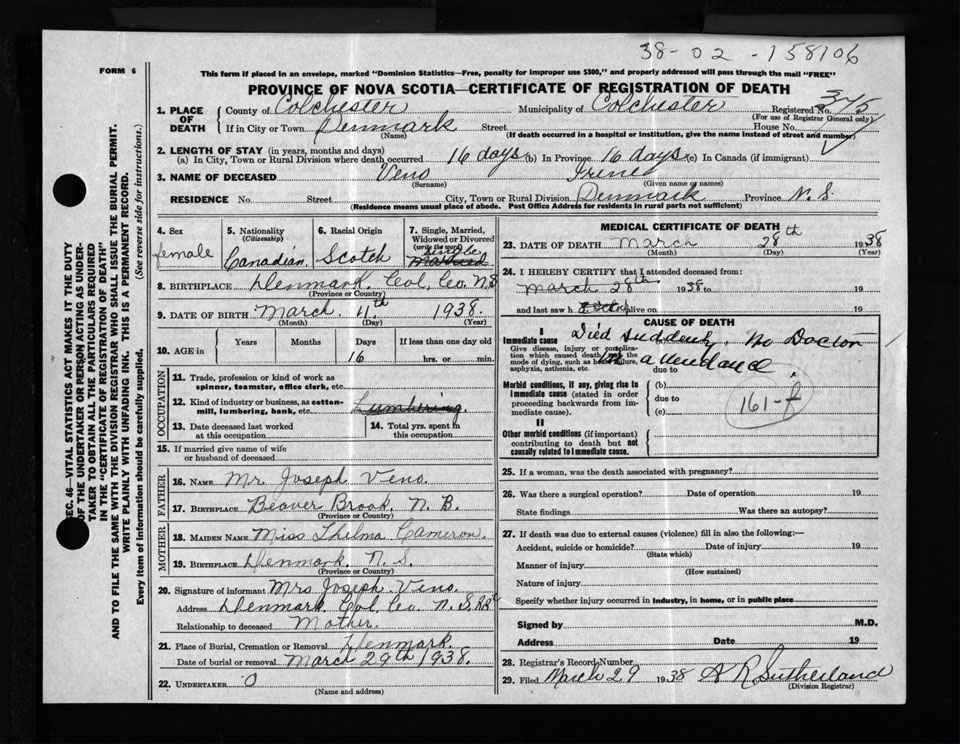 38-02-158106
FORM 6
This form if placed in an envelope, marked "Dominion Statistics—Free, penalty for improper use $300," and properly addressed will pass through the mail "FREE"
PROVINCE OF NOVA SCOTIA—CERTIFICATE OF REGISTRATION OF DEATH
1. PLACE OF DEATH County of Colchester Municipality of Colchester Registered No. 375
(For use of Registrar General only)
If in City or Town Denmark Street House No.
(Name) (If death occurred in a hospital or institution, give the name instead of street and number)
2. LENGTH OF STAY (in years, months and days)
(a) In City, Town or Rural Division where death occurred 16 days (b) In Province 16 days (c) In Canada (if immigrant)
3. NAME OF DECEASED Veno Irene
(Surname) (Given name or names)
RESIDENCE No. Street City, Town or Rural Division Denmark Province N.S
(Residence means usual place of abode. Post Office Address for residents in rural parts not sufficient)
SEC. 46—VITAL STATISTICS ACT MAKES IT THE DUTY
OF THE UNDERTAKER OR PERSON ACTING AS UNDER-
TAKER TO OBTAIN ALL THE PARTICULARS REQUIRED
IN THE "CERTIFICATE OF REGISTRATION OF DEATH"
AND TO FILE THE SAME WITH THE DIVISION REGISTRAR WHO SHALL ISSUE THE BURIAL PERMIT.
WRITE PLAINLY WITH UNFADING INK. THIS IS A PERMANENT RECORD.
Every item of information should be carefully supplied. (See reverse side for instructions.)
4. Sex
female
5. Nationality
(Citizenship)
Canadian
6. Racial Origin
Scotch
7. Single, Married,
Widowed or Divorced
(write the word)
Single
Married
8. BIRTHPLACE Denmark. Col. Co. N.S
(Province or Country)
9. DATE OF BIRTH March 11th 1938.
(Month) (Day) (Year)
10. AGE in Years Months Days If less than one day
16 hrs. or min.
OCCUPATION
11. Trade, profession or kind of work as
spinner, teamster, office clerk, etc.
12. Kind of industry or business, as cotton-
mill, lumbering, bank, etc. Lumbering.
13. Date deceased last worked
at this occupation
14. Total yrs. spent in
this occupation
15. If married give name of wife
or husband of deceased
FATHER
16. NAME Mr Joseph Veno.
17. BIRTHPLACE Beaver Brook, N. B.
(Province or Country)
MOTHER
18. MAIDEN NAME Miss Thelma Cameron.
19. BIRTHPLACE Denmark N. S.
(Province or Country)
20. Signature of informant Mrs Joseph Veno.
Address Denmark Col. Co. N. S.
Relationship to deceased Mother.
21. Place of Burial, Cremation or Removal Denmark.
Date of burial or removal March 29th 1938.
22. UNDERTAKER O
(Name and address)
MEDICAL CERTIFICATE OF DEATH
23. DATE OF DEATH March 28th 1938
(Month) (Day) (Year)
24. I HEREBY CERTIFY that I attended deceased from:
March 28th 1938 to 19
and last saw h alive on 19
CAUSE OF DEATH
I
Immediate cause Died suddenly. No Doctor
Give disease, injury or complica-
tion which caused death, not the
mode of dying, such as heart failure,
asphyxia, asthenia, etc.
in attendance.
due to
Morbid conditions, if any, giving rise to
immediate cause (stated in order
proceeding backwards from im-
mediate cause).
(b)
due to
(c)
161-f
II
Other morbid conditions (if important)
contributing to death but not
causally related to immediate cause.
25. If a woman, was the death associated with pregnancy?
26. Was there a surgical operation? Date of operation 19
State findings Was there an autopsy?
27. If death was due to external causes (violence) fill in also the following:—
Accident, suicide or homicide? Date of injury 19
(State which)
Manner of injury
(How sustained)
Nature of injury
Specify whether injury occurred in industry, in home, or in public place
Signed by M.D.
Address Date 19
28. Registrar's Record Number
29. Filed March 29 1938 A R Sutherland
(Division Registrar)